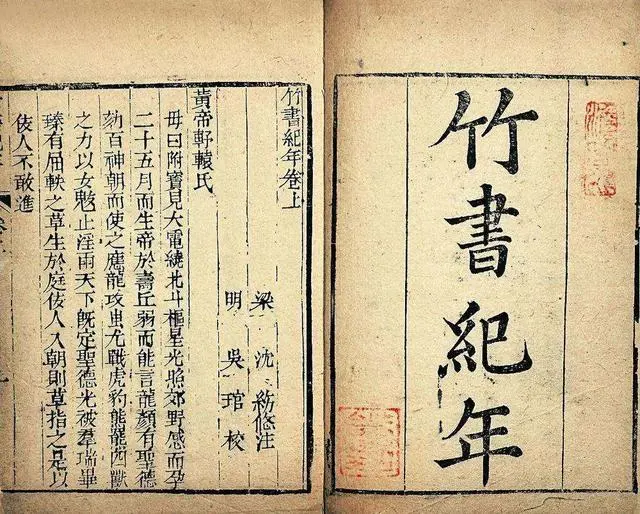 竹書紀年
竹書紀年卷上
梁 沈約附注
明 吳琯校
黃帝軒轅氏
母曰附寶見大電繞北斗樞星光照郊野感而孕
二十五月而生帝於壽丘弱而能言龍顏有聖德
劾百神朝而使之應龍攻蚩尤戰虎豹熊羆四獸
之力以女魃止淫雨天下既定聖德光被羣瑞畢
臻有屈軼之草生於庭佞人入朝則草指之是以
佞人不敢進